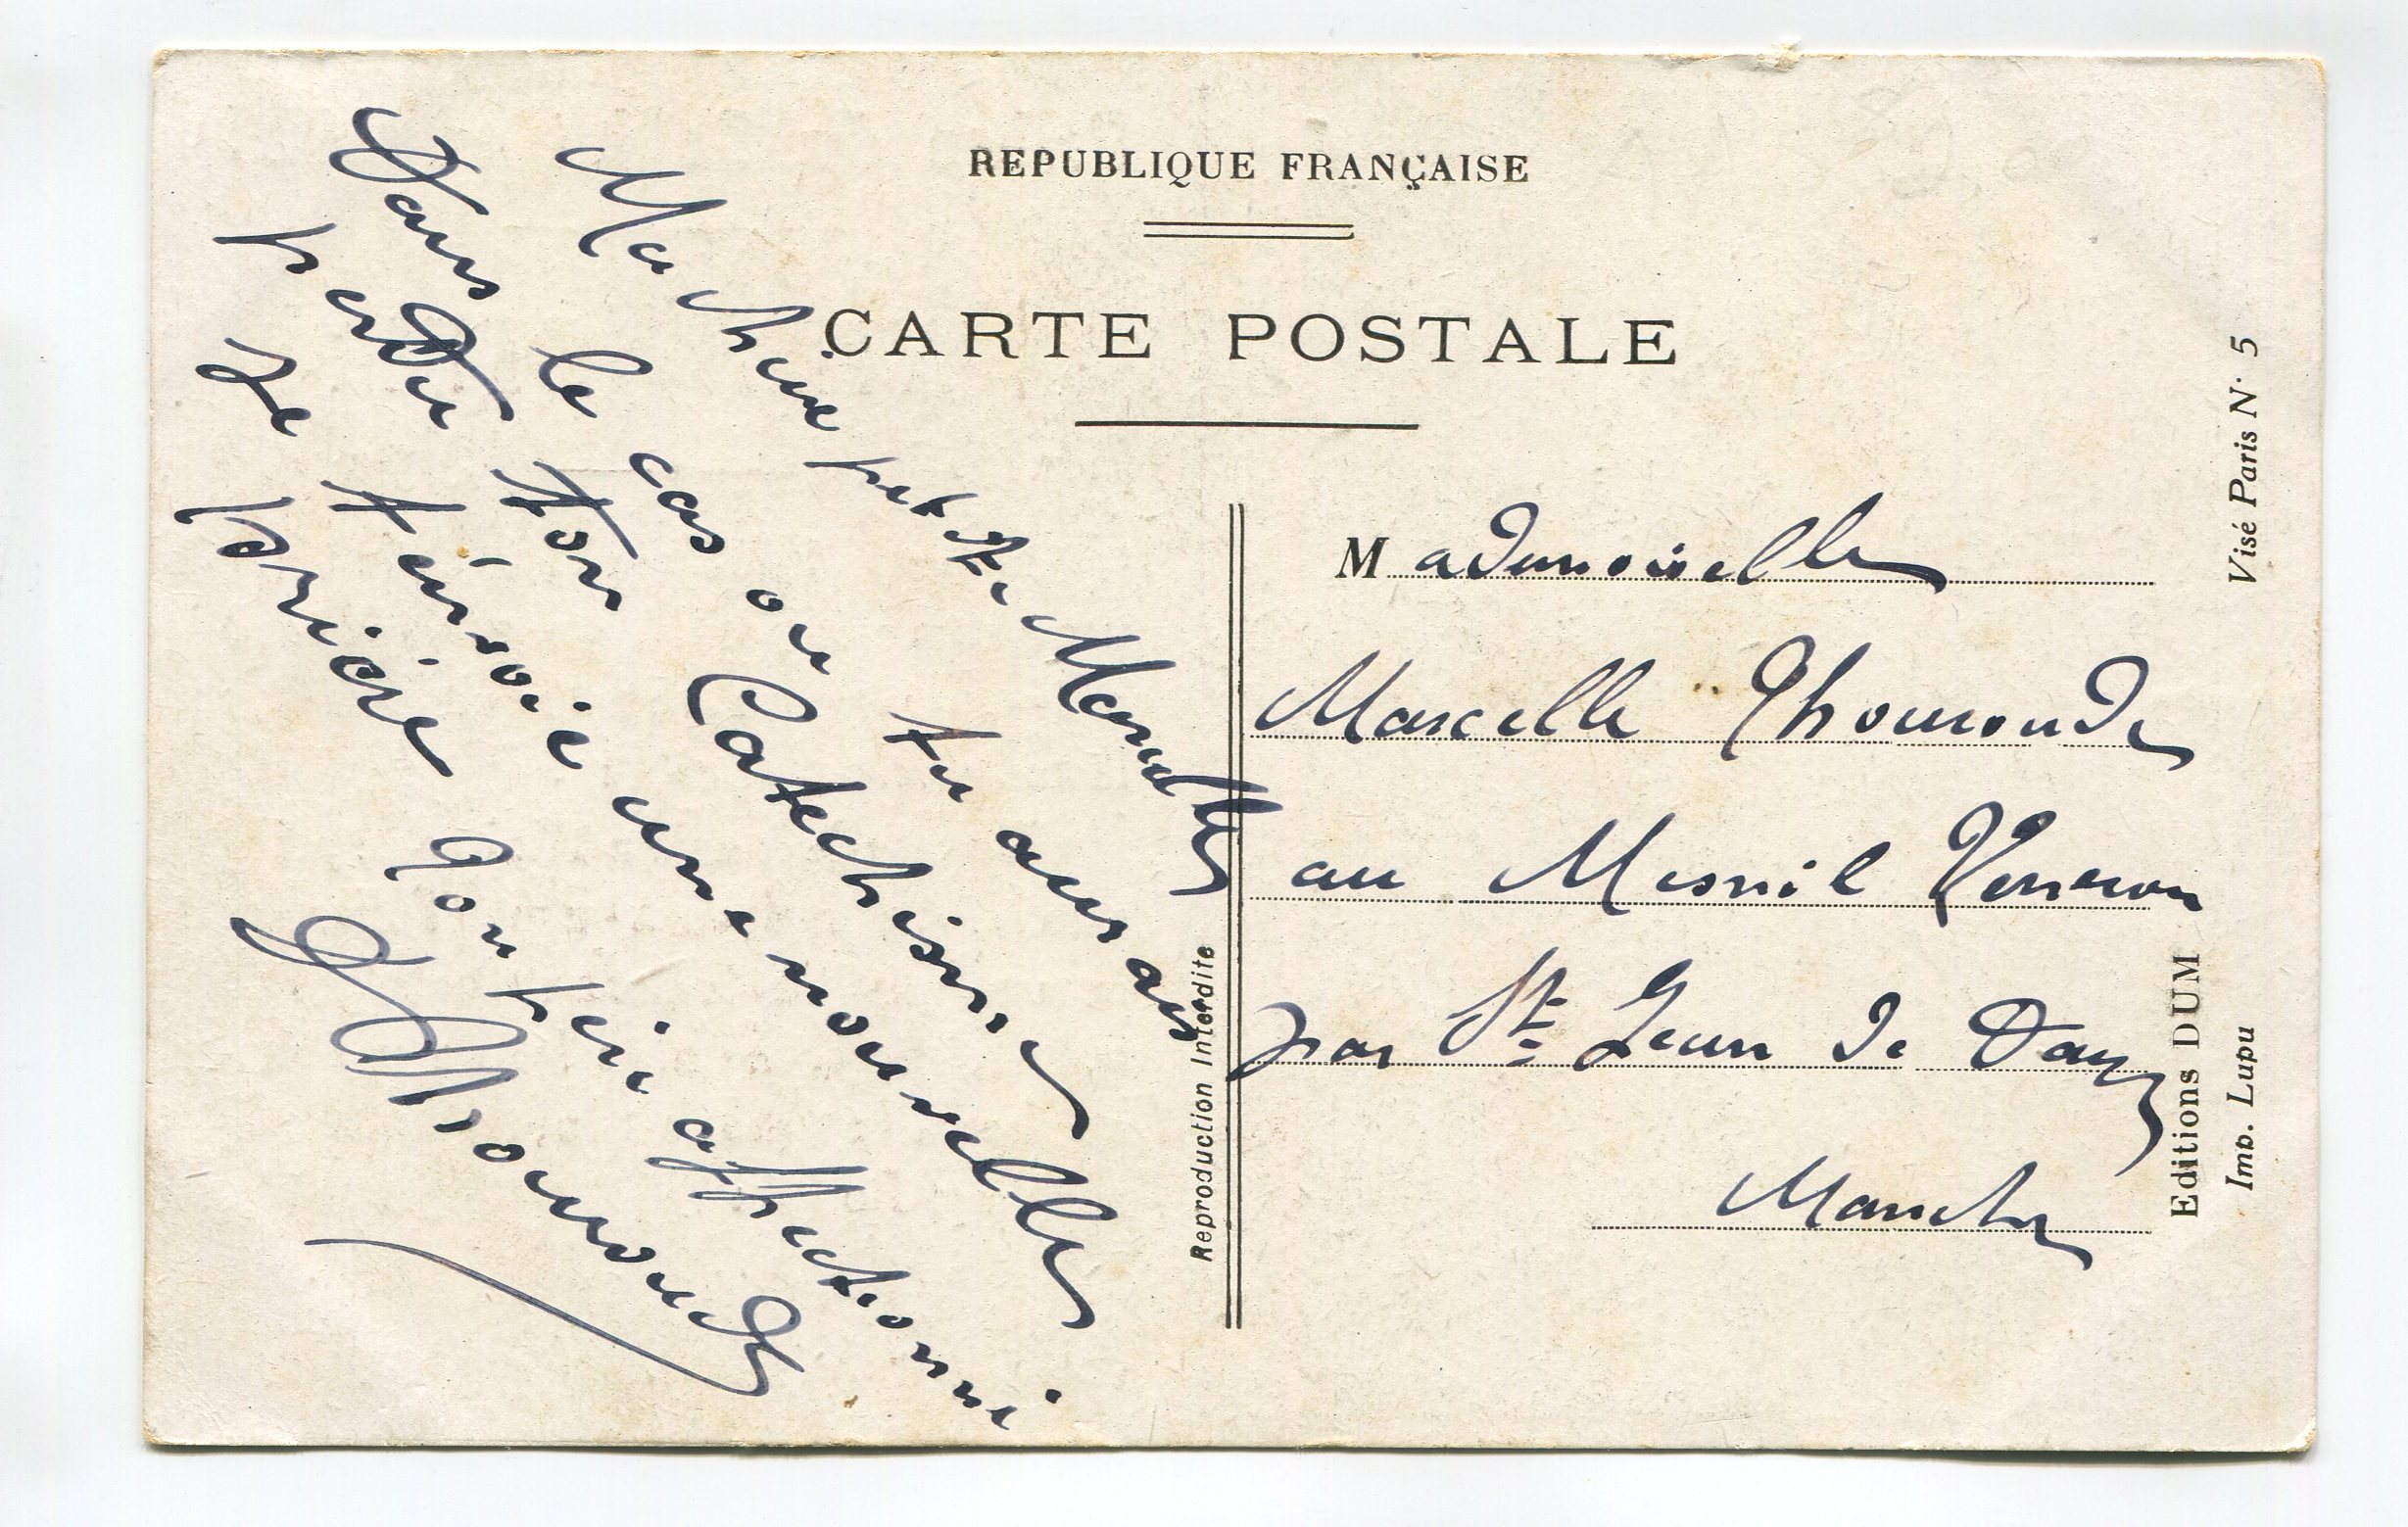 REPUBLIQUE FRANÇAISE
CARTE POSTALE
Ma chère petite Marcelle
Dans le cas ou tu aurais
perdu ton Catechisme
Je t'envoie une nouvelle
prière Ton père affectionné
Thomonde
Mademoiselle
Marcelle Thomonde
au Mesnil Veneron
par St Jean de Daye
Manche
Reproduction Interdite
Visé Paris N· 5
Editions DUM
Imp. Lupu